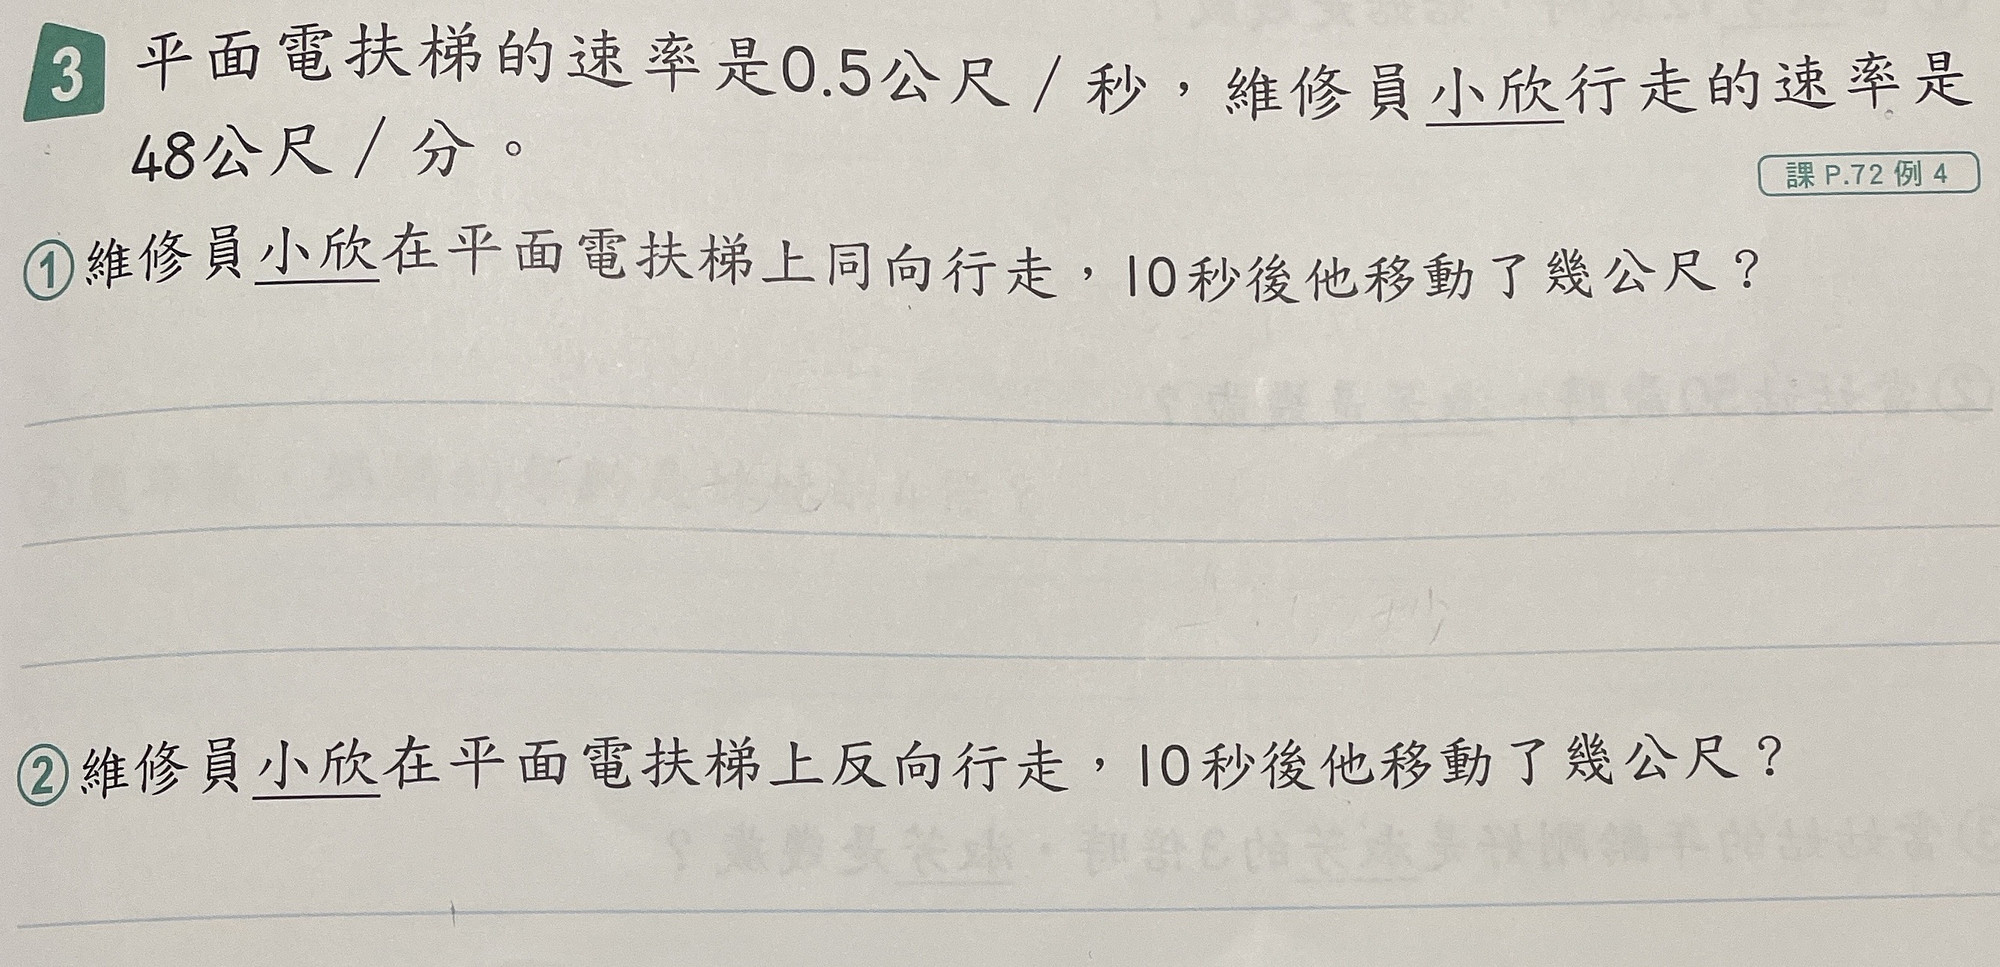 3 平面電扶梯的速率是0.5公尺/秒，維修員小欣行走的速率是
48公尺/分。
課 P.72 例 4
①維修員小欣在平面電扶梯上同向行走，10秒後他移動了幾公尺？
②維修員小欣在平面電扶梯上反向行走，10秒後他移動了幾公尺？